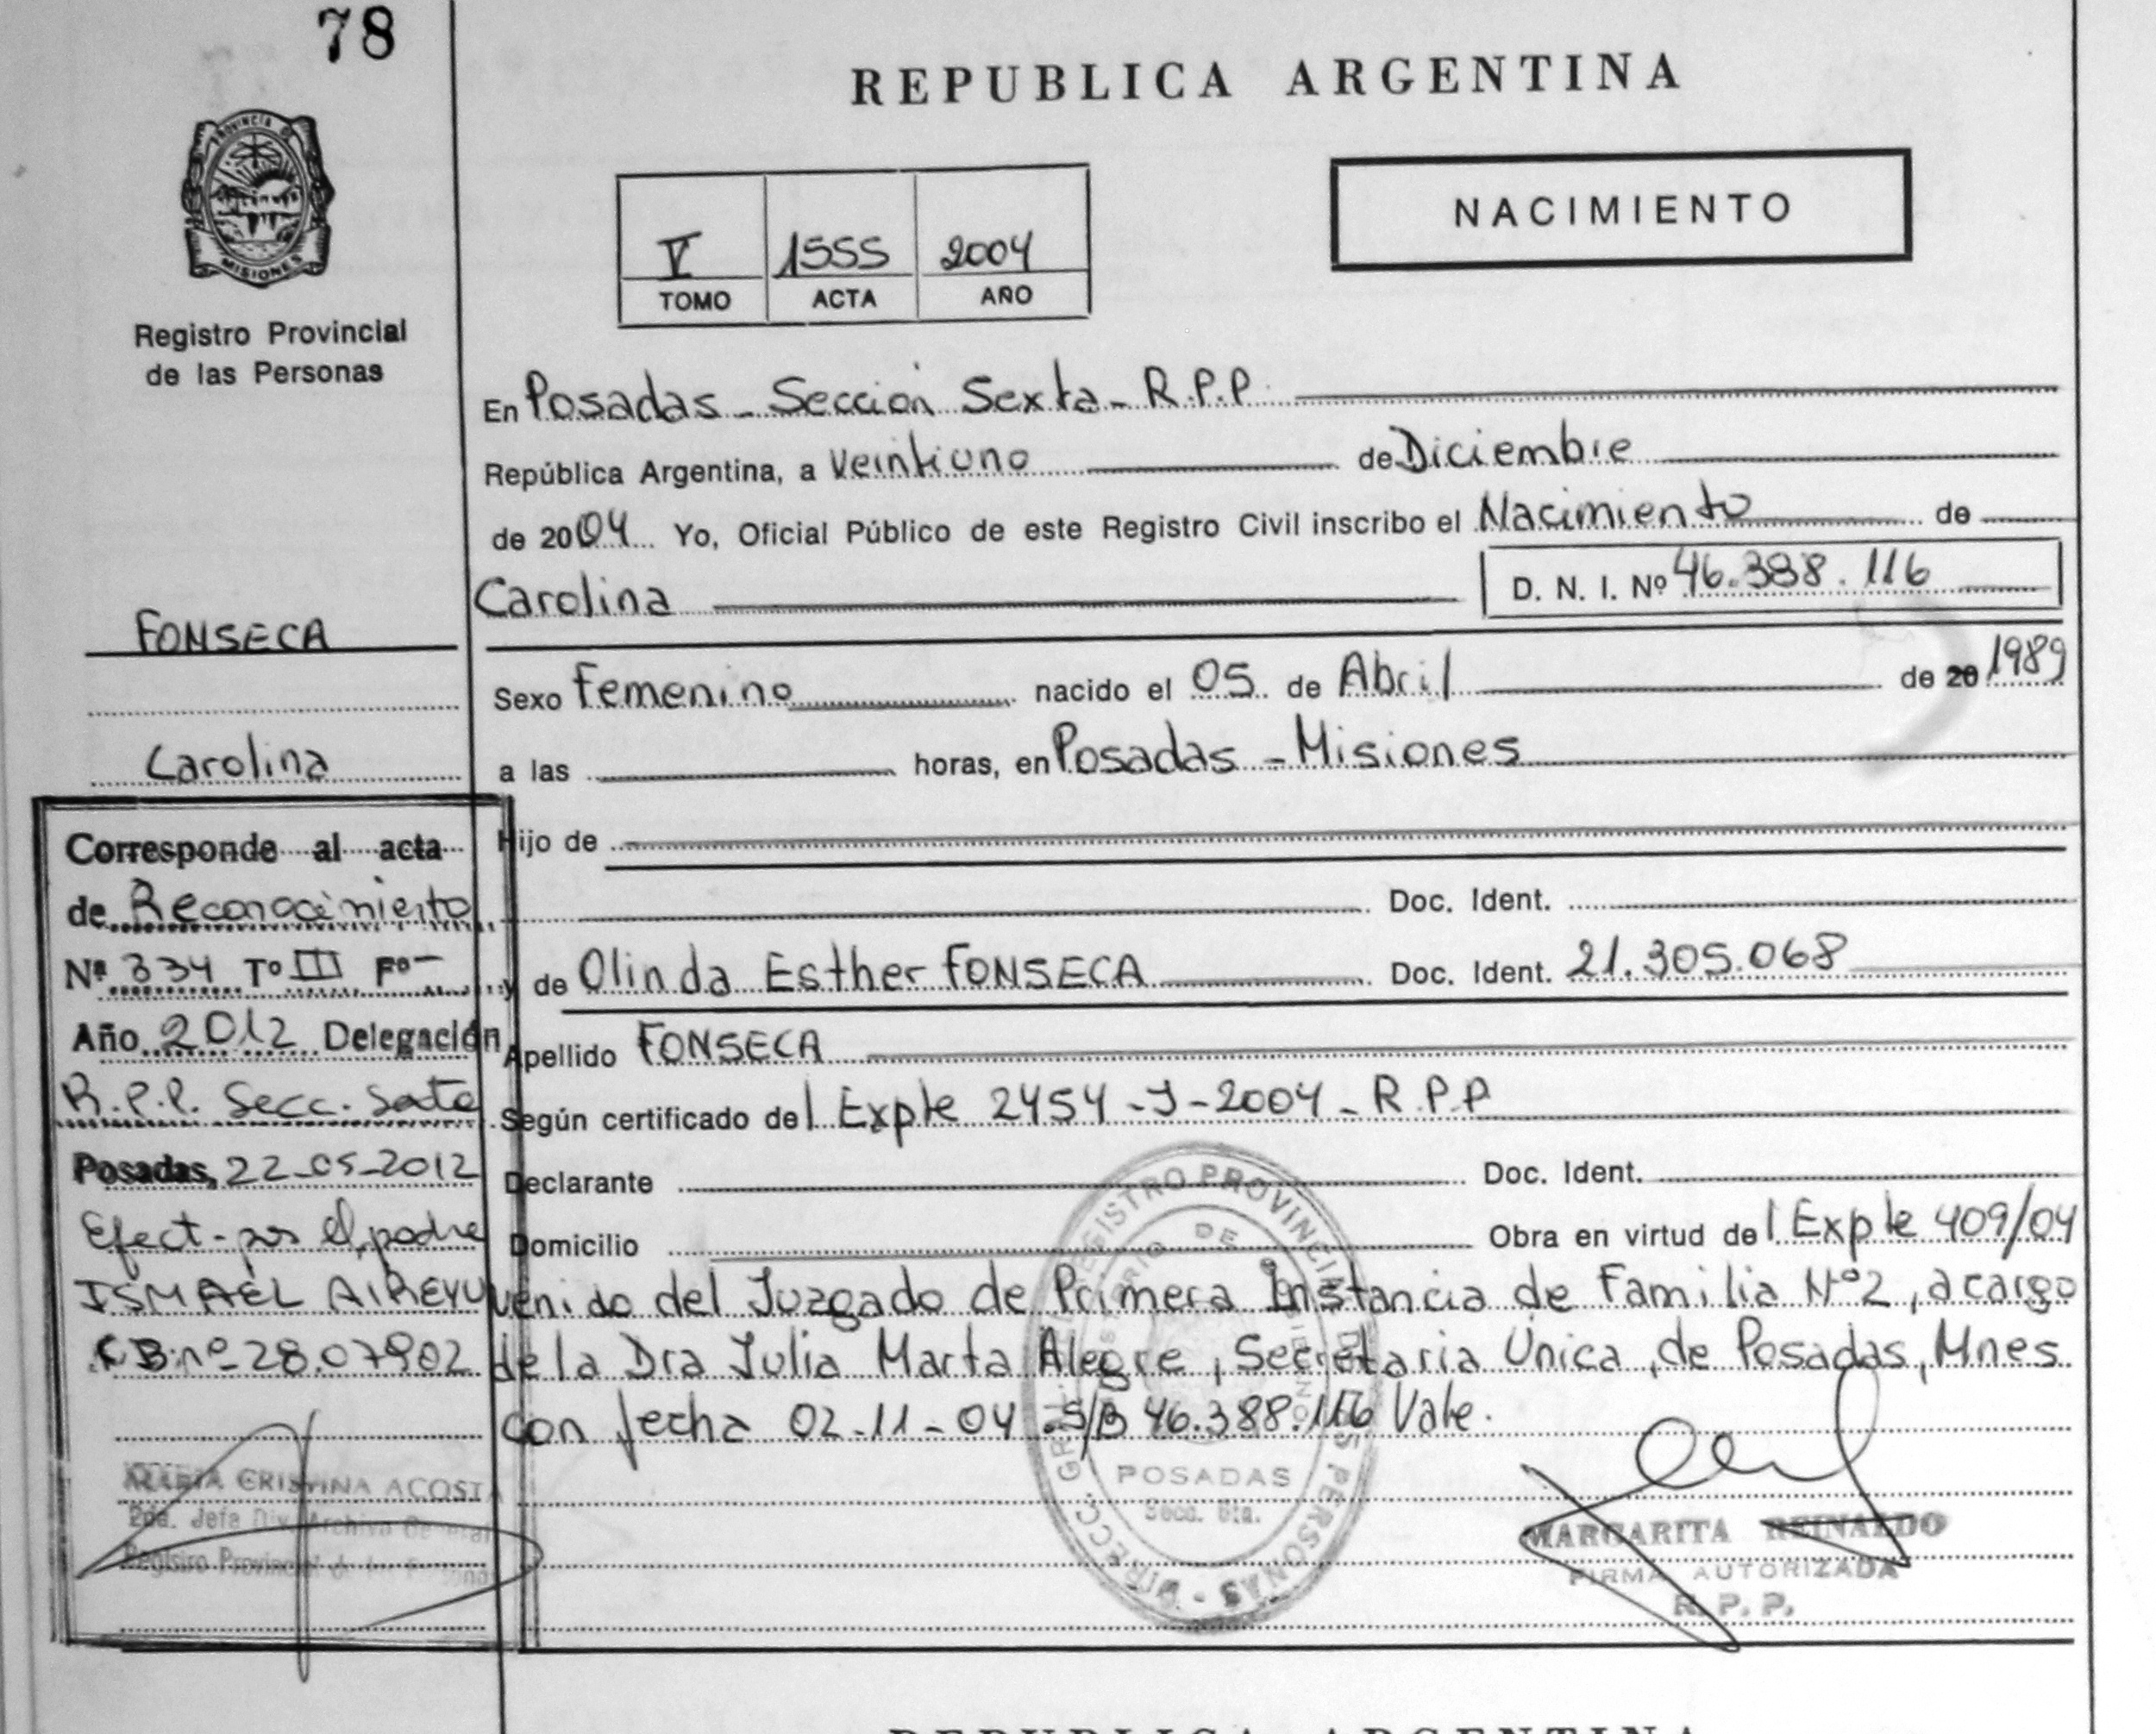 78
REPUBLICA ARGENTINA
PROVINCIA D
MISIONES
NACIMIENTO
V 1555 2004
TOMO ACTA AÑO
Registro Provincial
de las Personas
En Posadas - Sección Sexta - R.P.P.
República Argentina, a Veintiuno de Diciembre
de 2004 Yo, Oficial Público de este Registro Civil inscribo el Nacimiento de
Carolina D. N. I. Nº 46.388.116
FONSECA
Sexo Femenino nacido el 05 de Abril de 20 1989
Carolina
a las horas, en Posadas - Misiones
Hijo de
Doc. Ident.
y de Olinda Esther FONSECA Doc. Ident. 21.305.068
Apellido FONSECA
Según certificado del Expte 2454 - J - 2004 - R.P.P
Declarante Doc. Ident.
Domicilio Obra en virtud del Expte 409/04
venido del Juzgado de Primera Instancia de Familia Nº2, a cargo
de la Dra Julia Marta Alegre, Secretaria Unica, de Posadas, Mnes.
con fecha 02-11-04. S/B 46.388.116 Vale.
Corresponde al acta
de Reconocimiento
Nº 334 Tº III Fº -
Año 2012 Delegación
R.P.P. Secc. Sexta
Posadas, 22-05-2012
Efect. por el padre
ISMAEL
28.07902
MARIA CRISTINA ACOSTA
2da. Jefa Div. Archivo General
Registro Provincial de las Personas
DIRECC. GRAL. REGISTRO PROVINCIAL DE LAS PERSONAS
POSADAS
Secc. 6ta.
MARGARITA REINALDO
FIRMA AUTORIZADA
R. P. P.
REPUBLICA ARGENTINA